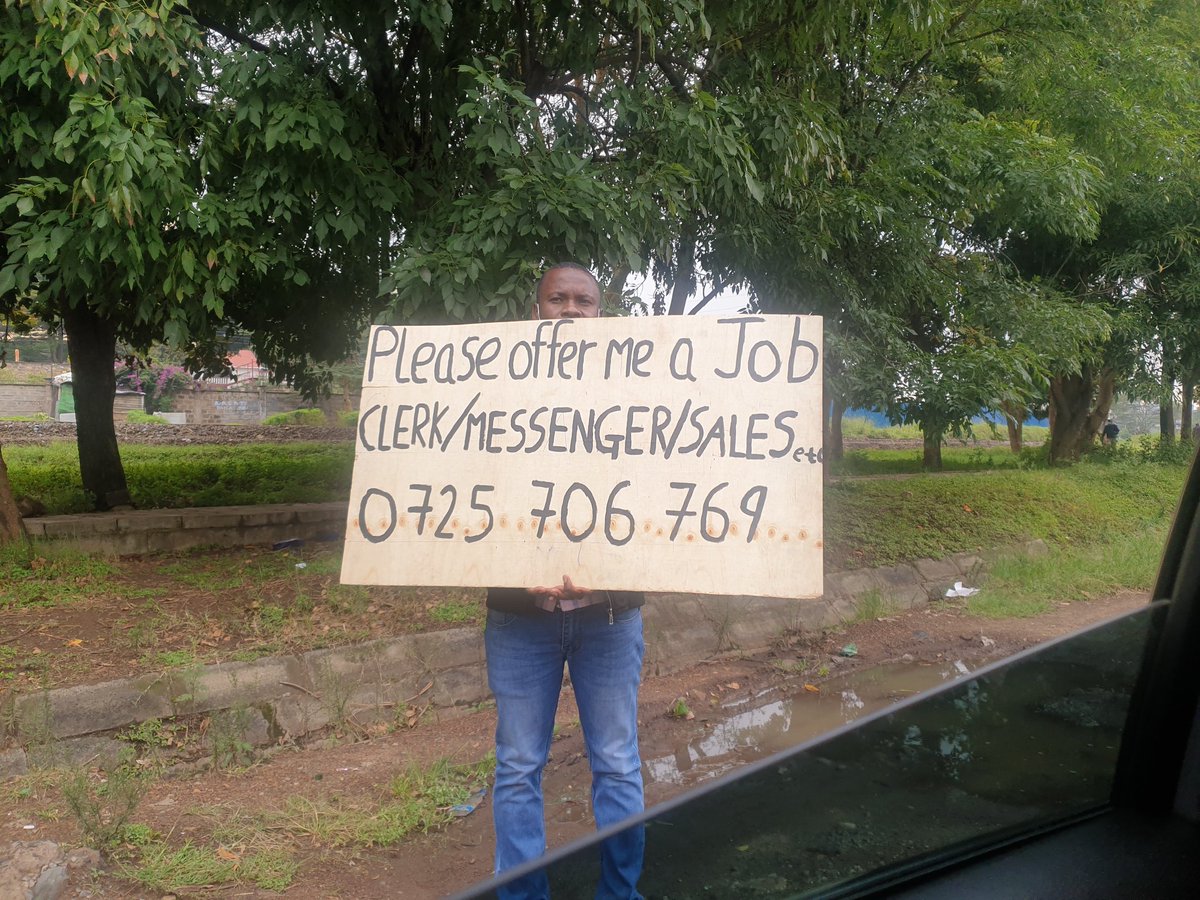 Please offer me a Job
CLERK/MESSENGER/SALES etc
0725 706 769